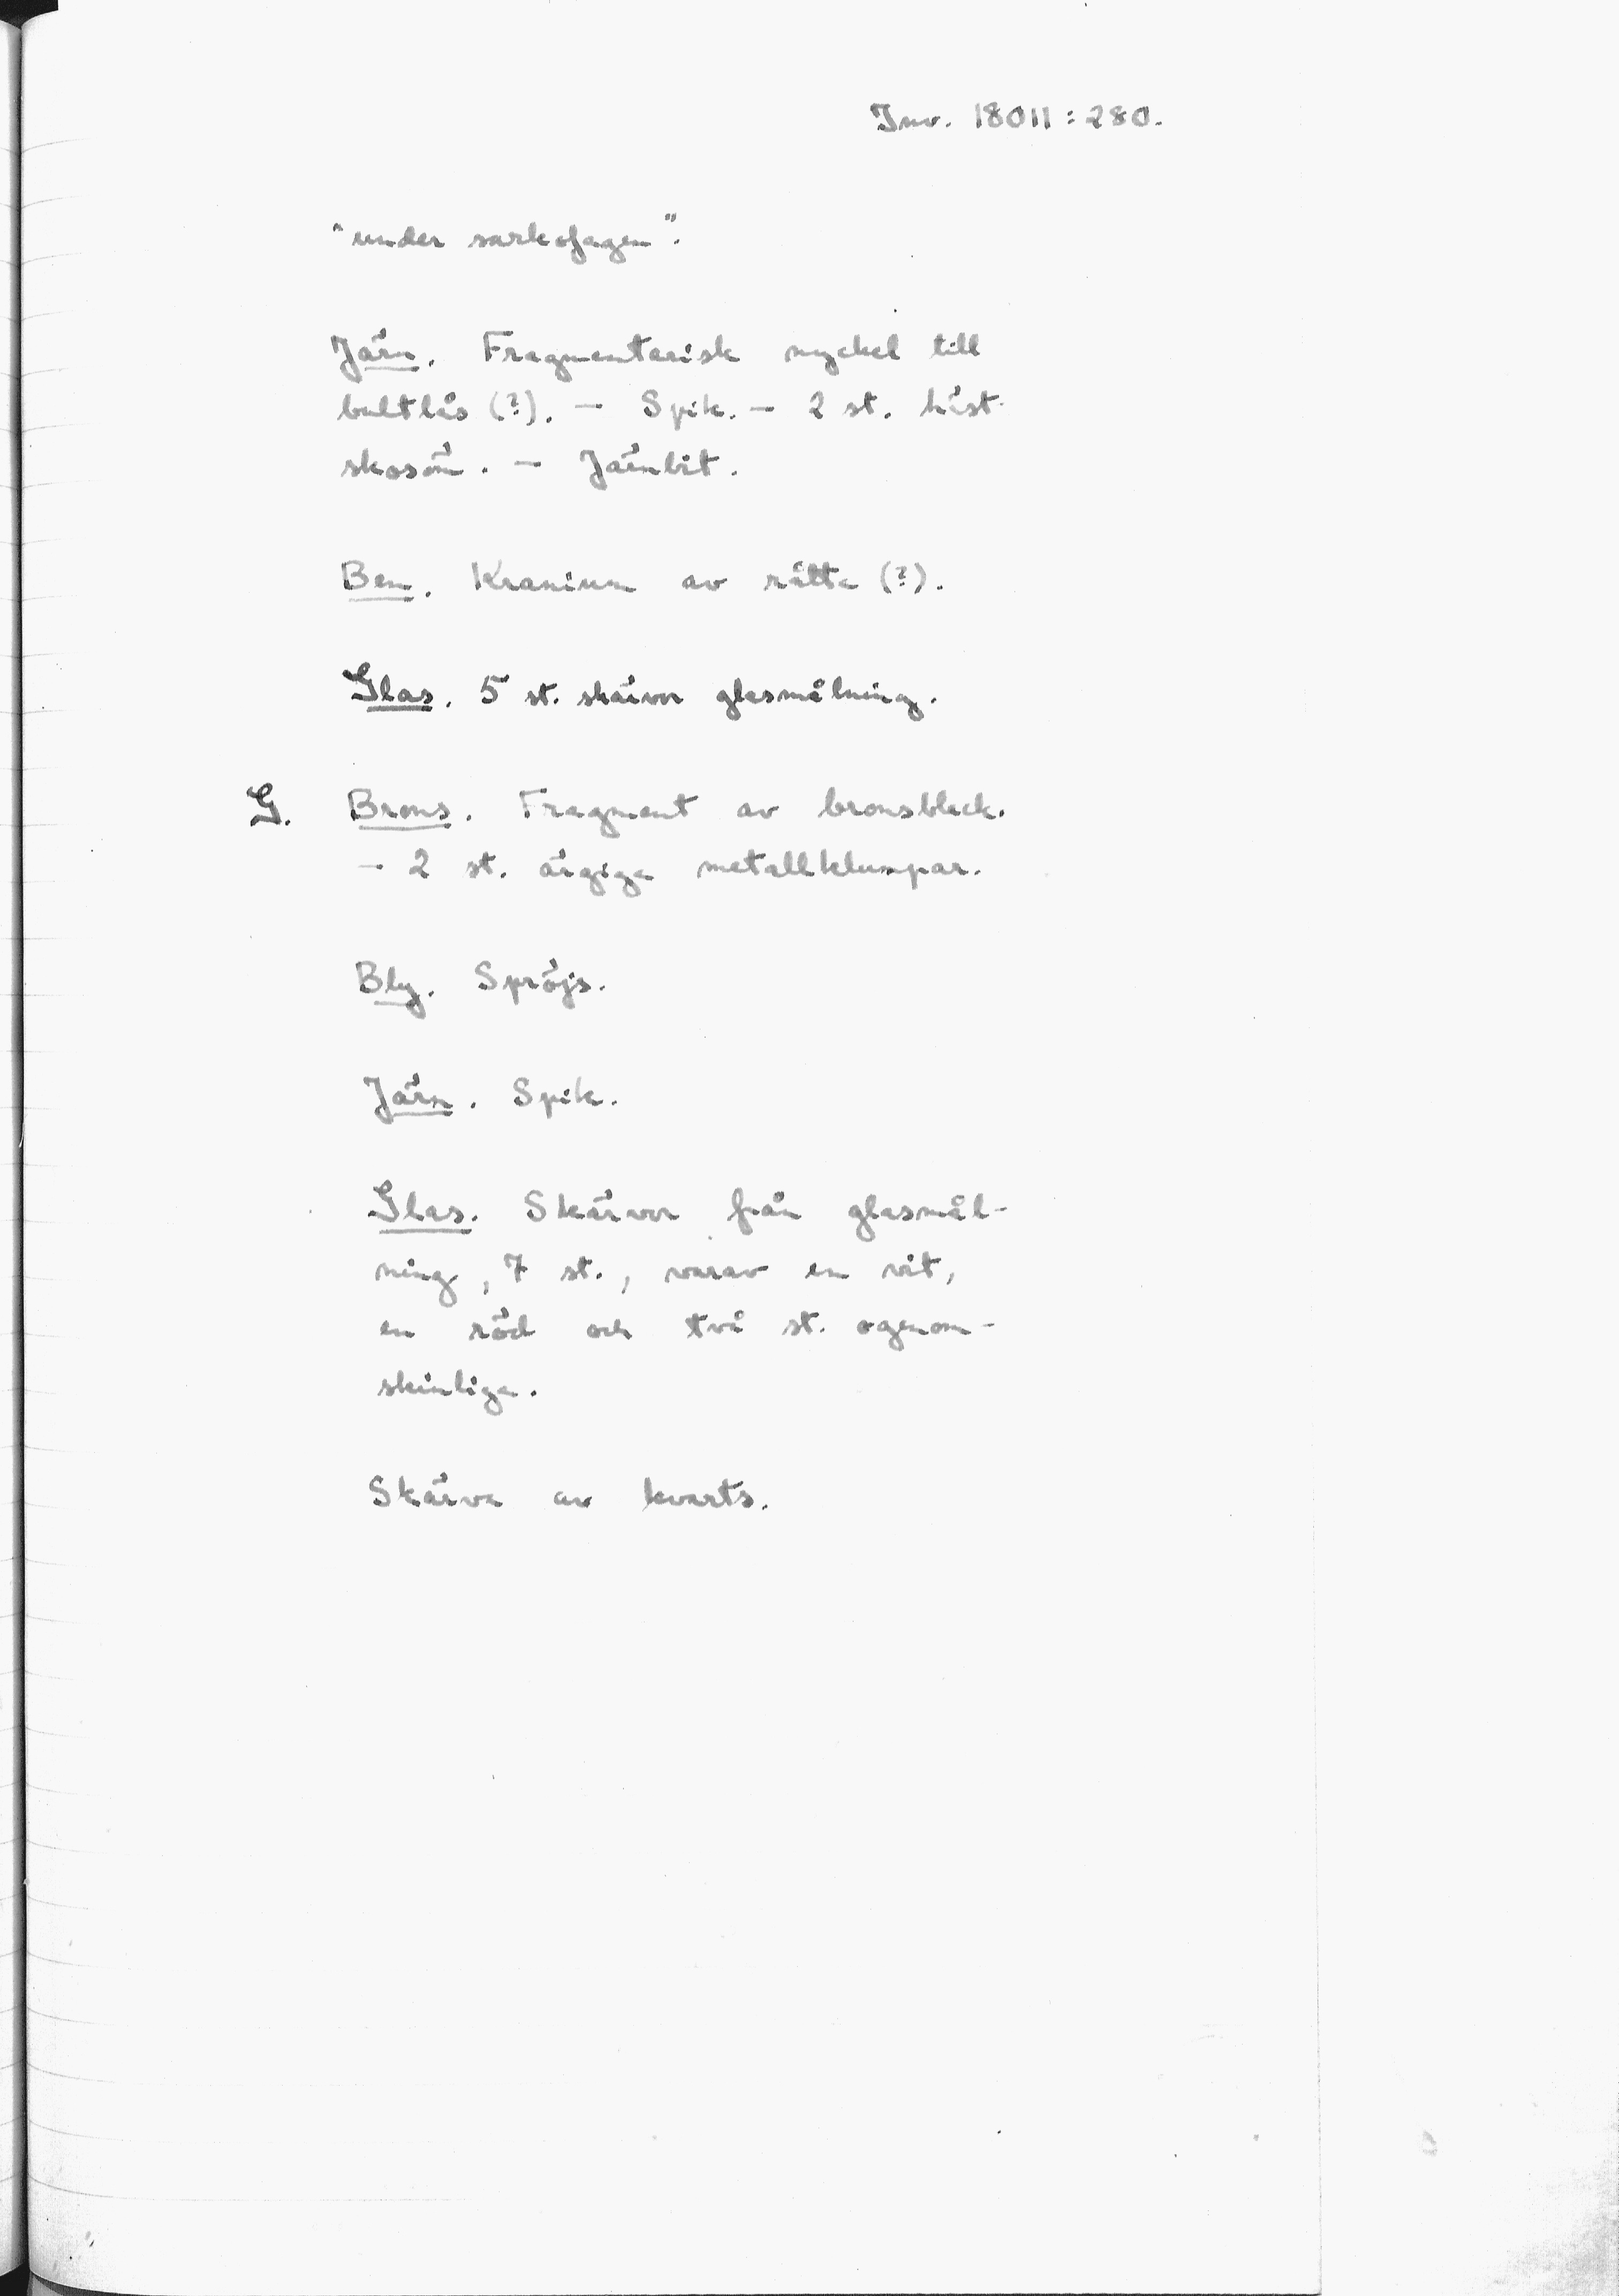 Inv. 18011:280.
"under sarkofagen".
Järn. Fragmentarisk nyckel till
bultlås (?). - Spik. - 2 st. häst-
skosöm. - Järnbit.
Ben. Kranium av råtta (?).
Glas. 5 st. skärvor glasmålning.
G. Brons. Fragment av bronsbleck.
- 2 st. ärgiga metallklumpar.
Bly. Spröjs.
Järn. Spik.
Glas. Skärvor från glasmål-
ning, 7 st., varav en vit,
en röd och två st. ogenom-
skinliga.
Skärva av kvarts.